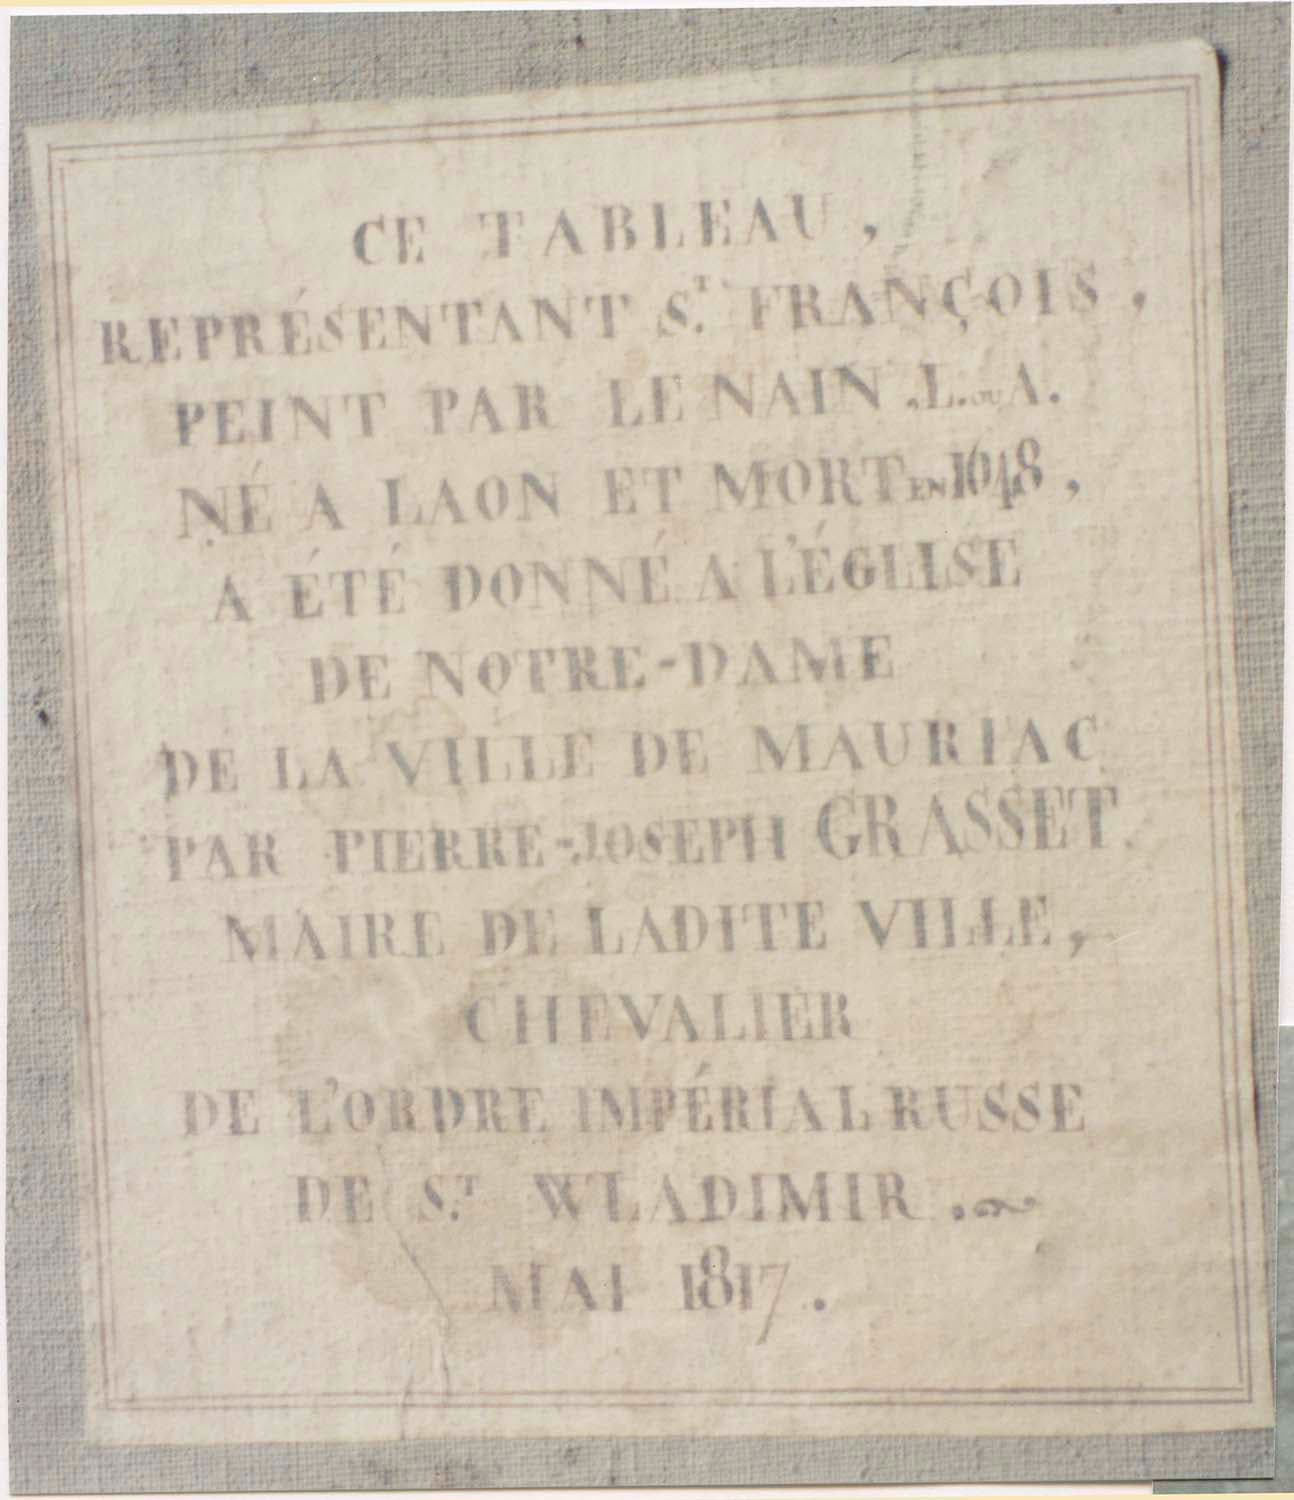 CE TABLEAU,
REPRÉSENTANT S.T FRANÇOIS,
PEINT PAR LE NAIN .L. OU A.
NÉ A LAON ET MORT EN 1648,
A ÉTÉ DONNÉ A L'ÉGLISE
DE NOTRE-DAME
DE LA VILLE DE MAURIAC
PAR PIERRE-JOSEPH GRASSET
MAIRE DE LADITE VILLE,
CHEVALIER
DE L'ORDRE IMPÉRIAL RUSSE
DE S.T WLADIMIR.
MAI 1817.